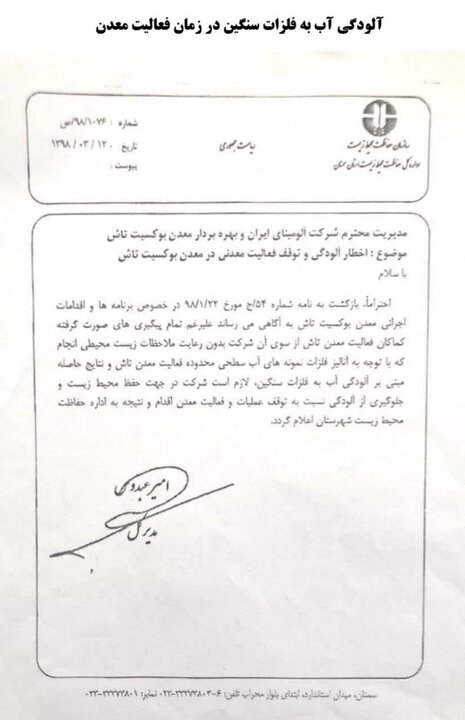 آلودگی آب به فلزات سنگین در زمان فعالیت معدن
سازمان حفاظت محیط زیست
اداره کل حفاظت محیط زیست استان سمنان
ریاست جمهوری
شماره : ۹۸/۱۰۷۶/ص
تاریخ : ۱۳۹۸ / ۰۳ / ۱۲
پیوست :
مدیریت محترم شرکت آلومینای ایران و بهره بردار معدن بوکسیت تاش
موضوع : اخطار آلودگی و توقف فعالیت معدنی در معدن بوکسیت تاش
با سلام
احتراماً، بازگشت به نامه شماره ۵۴/ج مورخ ۹۸/۱/۲۲ در خصوص برنامه ها و اقدامات
اجرائی معدن بوکسیت تاش به آگاهی می رساند علیرغم تمام پیگیری های صورت گرفته
کماکان فعالیت معدن تاش از سوی آن شرکت بدون رعایت ملاحظات زیست محیطی انجام
که با توجه به آنالیز فلزات نمونه های آب سطحی محدوده فعالیت معدن تاش و نتایج حاصله
مبنی بر آلودگی آب به فلزات سنگین، لازم است شرکت در جهت حفظ محیط زیست و
جلوگیری از آلودگی نسبت به توقف عملیات و فعالیت معدن اقدام و نتیجه به اداره حفاظت
محیط زیست شهرستان اعلام گردد.
امیر عبدوس
مدیر کل
سمنان، میدان استاندارد، ابتدای بلوار محراب تلفن: ۶-۳۳۲۷۳۸۰۳-۰۲۳ نمابر: ۳۳۲۷۳۸۰۱-۰۲۳